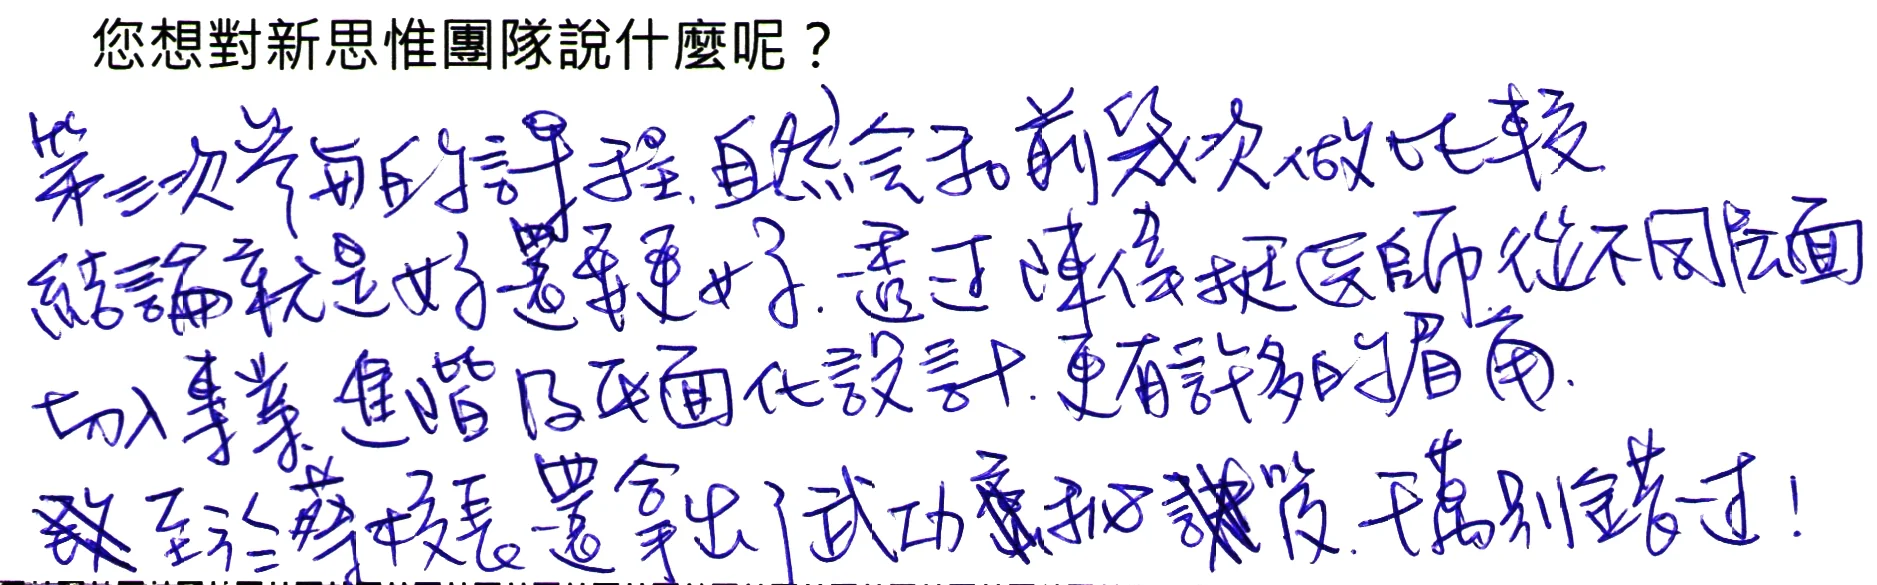 您想對新思惟團隊說什麼呢？
第三次參與的課程,自然會和前幾次做比較
結論就是好還要更好.透过陳偉挺医師從不同层面
切入專業、進階及平面化設計.更有許多的眉角.
至於蔡校長還拿出了武功秘笈.千萬別錯过!